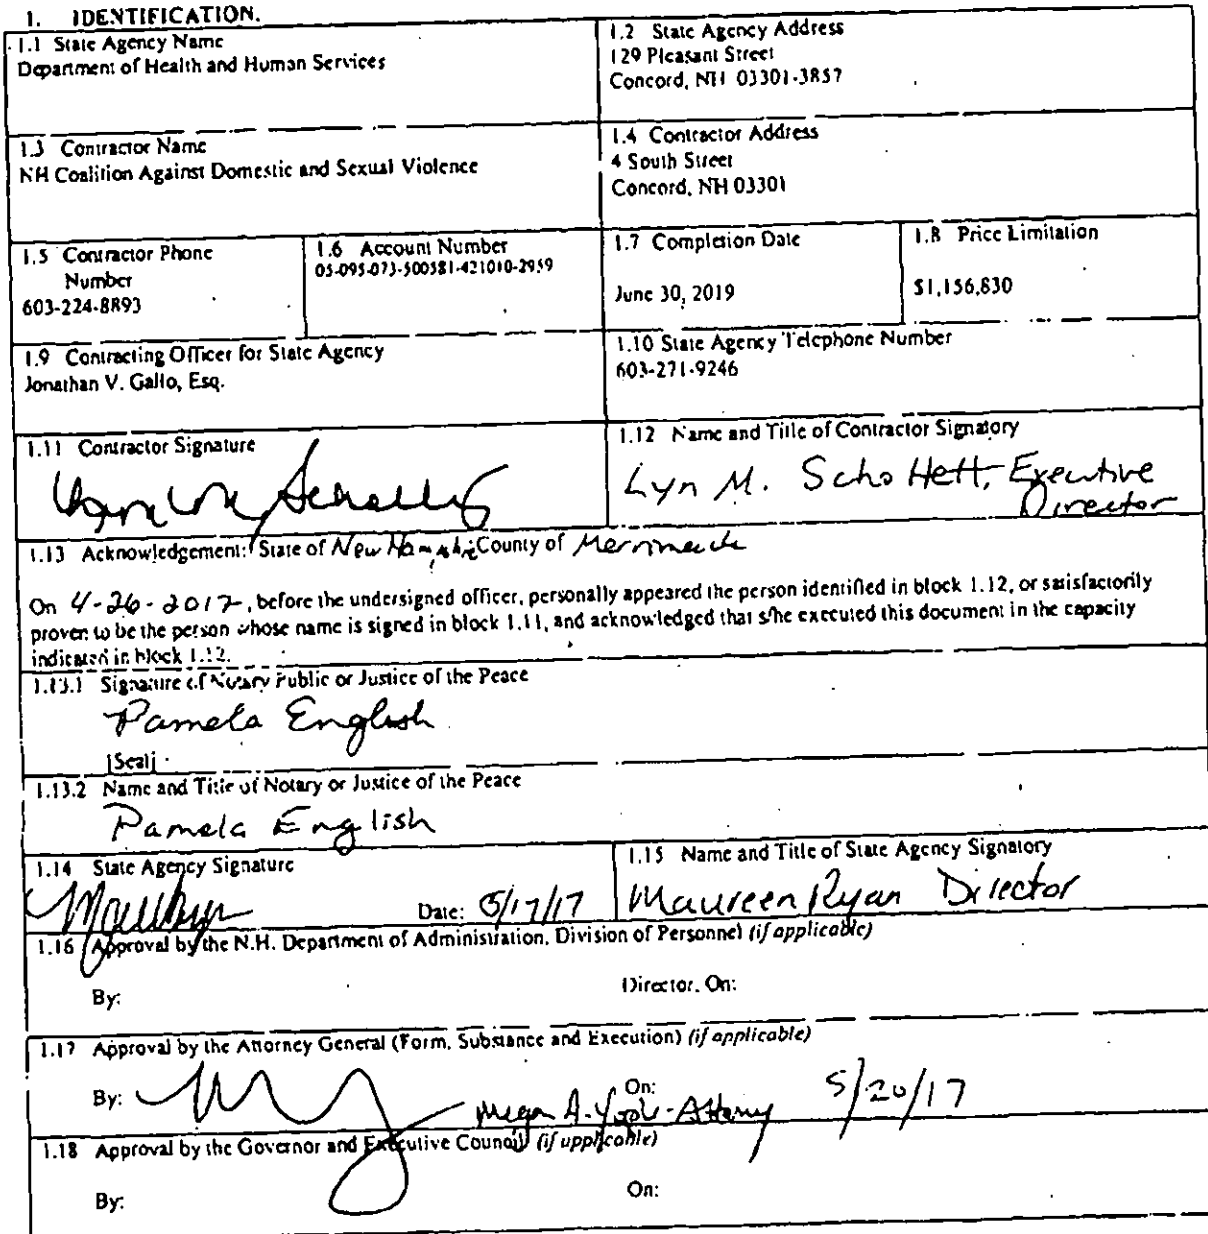 1. IDENTIFICATION.
1.1 State Agency Name
Department of Health and Human Services
1.2 State Agency Address
129 Pleasant Street
Concord, NH 03301-3857
1.3 Contractor Name
NH Coalition Against Domestic and Sexual Violence
1.4 Contractor Address
4 South Street
Concord, NH 03301
1.5 Contractor Phone
Number
603-224-8893
1.6 Account Number
05-095-073-500581-421010-2959
1.7 Completion Date
June 30, 2019
1.8 Price Limitation
$1,156,830
1.9 Contracting Officer for State Agency
Jonathan V. Gallo, Esq.
1.10 State Agency Telephone Number
603-271-9246
1.11 Contractor Signature
1.12 Name and Title of Contractor Signatory
Lyn M. Schollett, Executive
Director
1.13 Acknowledgement: State of New Hampshire County of Merrimack
On 4-26-2017, before the undersigned officer, personally appeared the person identified in block 1.12, or satisfactorily
proven to be the person whose name is signed in block 1.11, and acknowledged that s/he executed this document in the capacity
indicated in block 1.12.
1.13.1 Signature of Notary Public or Justice of the Peace
Pamela English
[Seal]
1.13.2 Name and Title of Notary or Justice of the Peace
Pamela English
1.14 State Agency Signature
Date: 5/17/17
1.15 Name and Title of State Agency Signatory
Maureen Ryan Director
1.16 Approval by the N.H. Department of Administration, Division of Personnel (if applicable)
By: Director, On:
1.17 Approval by the Attorney General (Form, Substance and Execution) (if applicable)
By: On:
Megan A. - Attorney 5/20/17
1.18 Approval by the Governor and Executive Council (if applicable)
By: On: